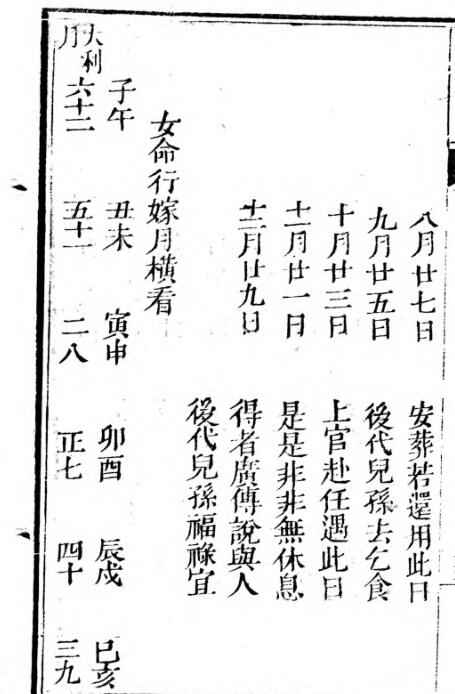 八月廿七日 安葬若還用此日
九月廿五日 後代兒孫去乞食
十月廿三日 上官赴任遇此日
十一月廿一日 是是非非無休息
十二月廿九日 得者廣傳說與人
後代兒孫福祿宜
女命行嫁月橫看
子午 丑未 寅申 卯酉 辰戌 巳亥
大利月 六十二 五十一 二八 正七 四十 三九